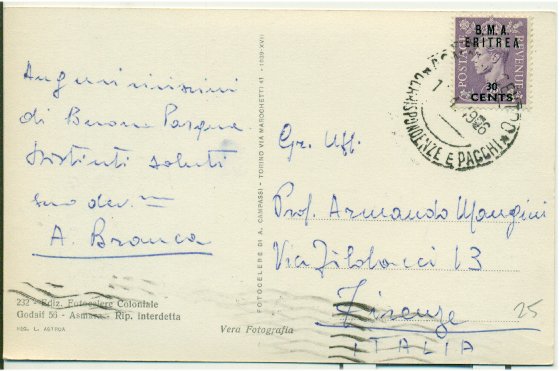 Auguri vivissimi
di Buona Pasqua
Distinti saluti
suo dev.mo
A. Branca
232 - Ediz. Fotocelere Coloniale
Godaif 56 - Asmara - Rip. interdetta
NEG. L. ASTROA
Vera Fotografia
FOTOCELERE DI A. CAMPASSI - TORINO VIA MAROCHETTI 41 - 1939-XVII
B.M.A.
ERITREA
POSTAGE
REVENUE
30
CENTS
CORRISPONDENZE E PACCHI
Gr. Uff.
Prof. Armando Mangini
Via Fildacci 13
Firenze
ITALIA
25